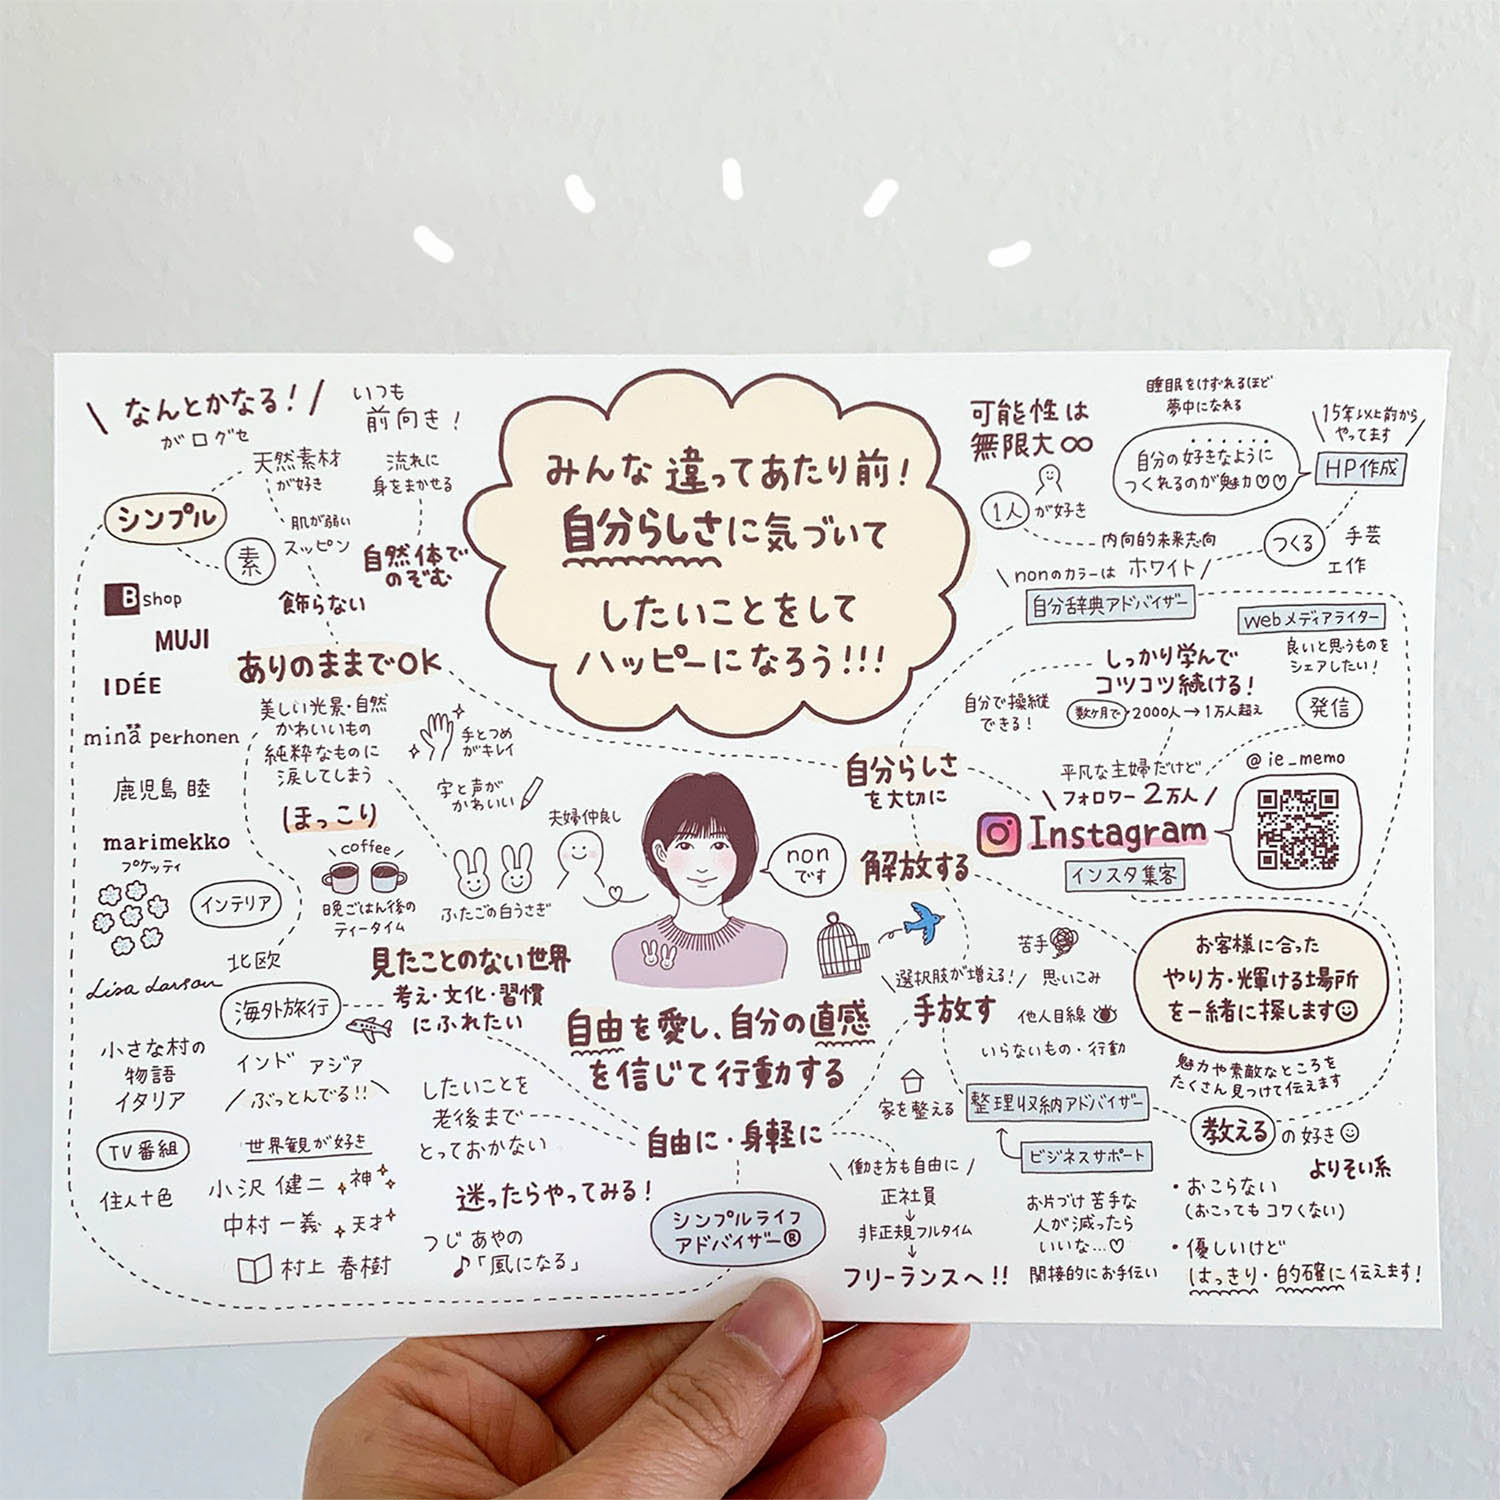 なんとかなる！
がログセ
いつも
前向き！
天然素材
が好き
流れに
身をまかせる
シンプル
肌が弱い
スッピン
素
自然体で
のぞむ
飾らない
B shop
MUJI
IDÉE
minä perhonen
鹿児島 睦
marimekko
プケッティ
Lisa Larson
ありのままでOK
美しい光景・自然
かわいいもの
純粋なものに
涙してしまう
ほっこり
coffee
晩ごはん後の
ティータイム
インテリア
北欧
手とつめ
がキレイ
字と声が
かわいい
夫婦仲良し
ふたごの白うさぎ
みんな違ってあたり前！
自分らしさに気づいて
したいことをして
ハッピーになろう!!!
non
です
見たことのない世界
考え・文化・習慣
にふれたい
海外旅行
インド アジア
ぶっとんでる!!
小さな村の
物語
イタリア
TV番組
住人十色
世界観が好き
小沢 健二 神
中村 一義 天才
村上 春樹
自由を愛し、自分の直感
を信じて行動する
したいことを
老後まで
とっておかない
自由に・身軽に
迷ったらやってみる！
つじ あやの
♪「風になる」
シンプルライフ
アドバイザー®
働き方も自由に
正社員
↓
非正規フルタイム
↓
フリーランスへ!!
可能性は
無限大∞
1人が好き
睡眠をけずれるほど
夢中になれる
自分の好きなように
つくれるのが魅力♡♡
15年以上前から
やってます
HP作成
内向的未来志向
つくる
手芸
工作
nonのカラーは ホワイト
自分辞典アドバイザー
webメディアライター
良いと思うものを
シェアしたい！
しっかり学んで
コツコツ続ける！
自分で操縦
できる！
数ヶ月で 2000人→1万人超え
発信
自分らしさ
を大切に
平凡な主婦だけど
フォロワー2万人
@ie_memo
Instagram
インスタ集客
解放する
選択肢が増える！
手放す
苦手
思いこみ
他人目線
いらないもの・行動
お客様に合った
やり方・輝ける場所
を一緒に探します
魅力や素敵なところを
たくさん見つけて伝えます
家を整える
整理収納アドバイザー
ビジネスサポート
お片づけ苦手な
人が減ったら
いいな…♡
間接的にお手伝い
教えるの好き
よりそい系
・おこらない
(おこってもコワくない)
・優しいけど
はっきり・的確に伝えます！